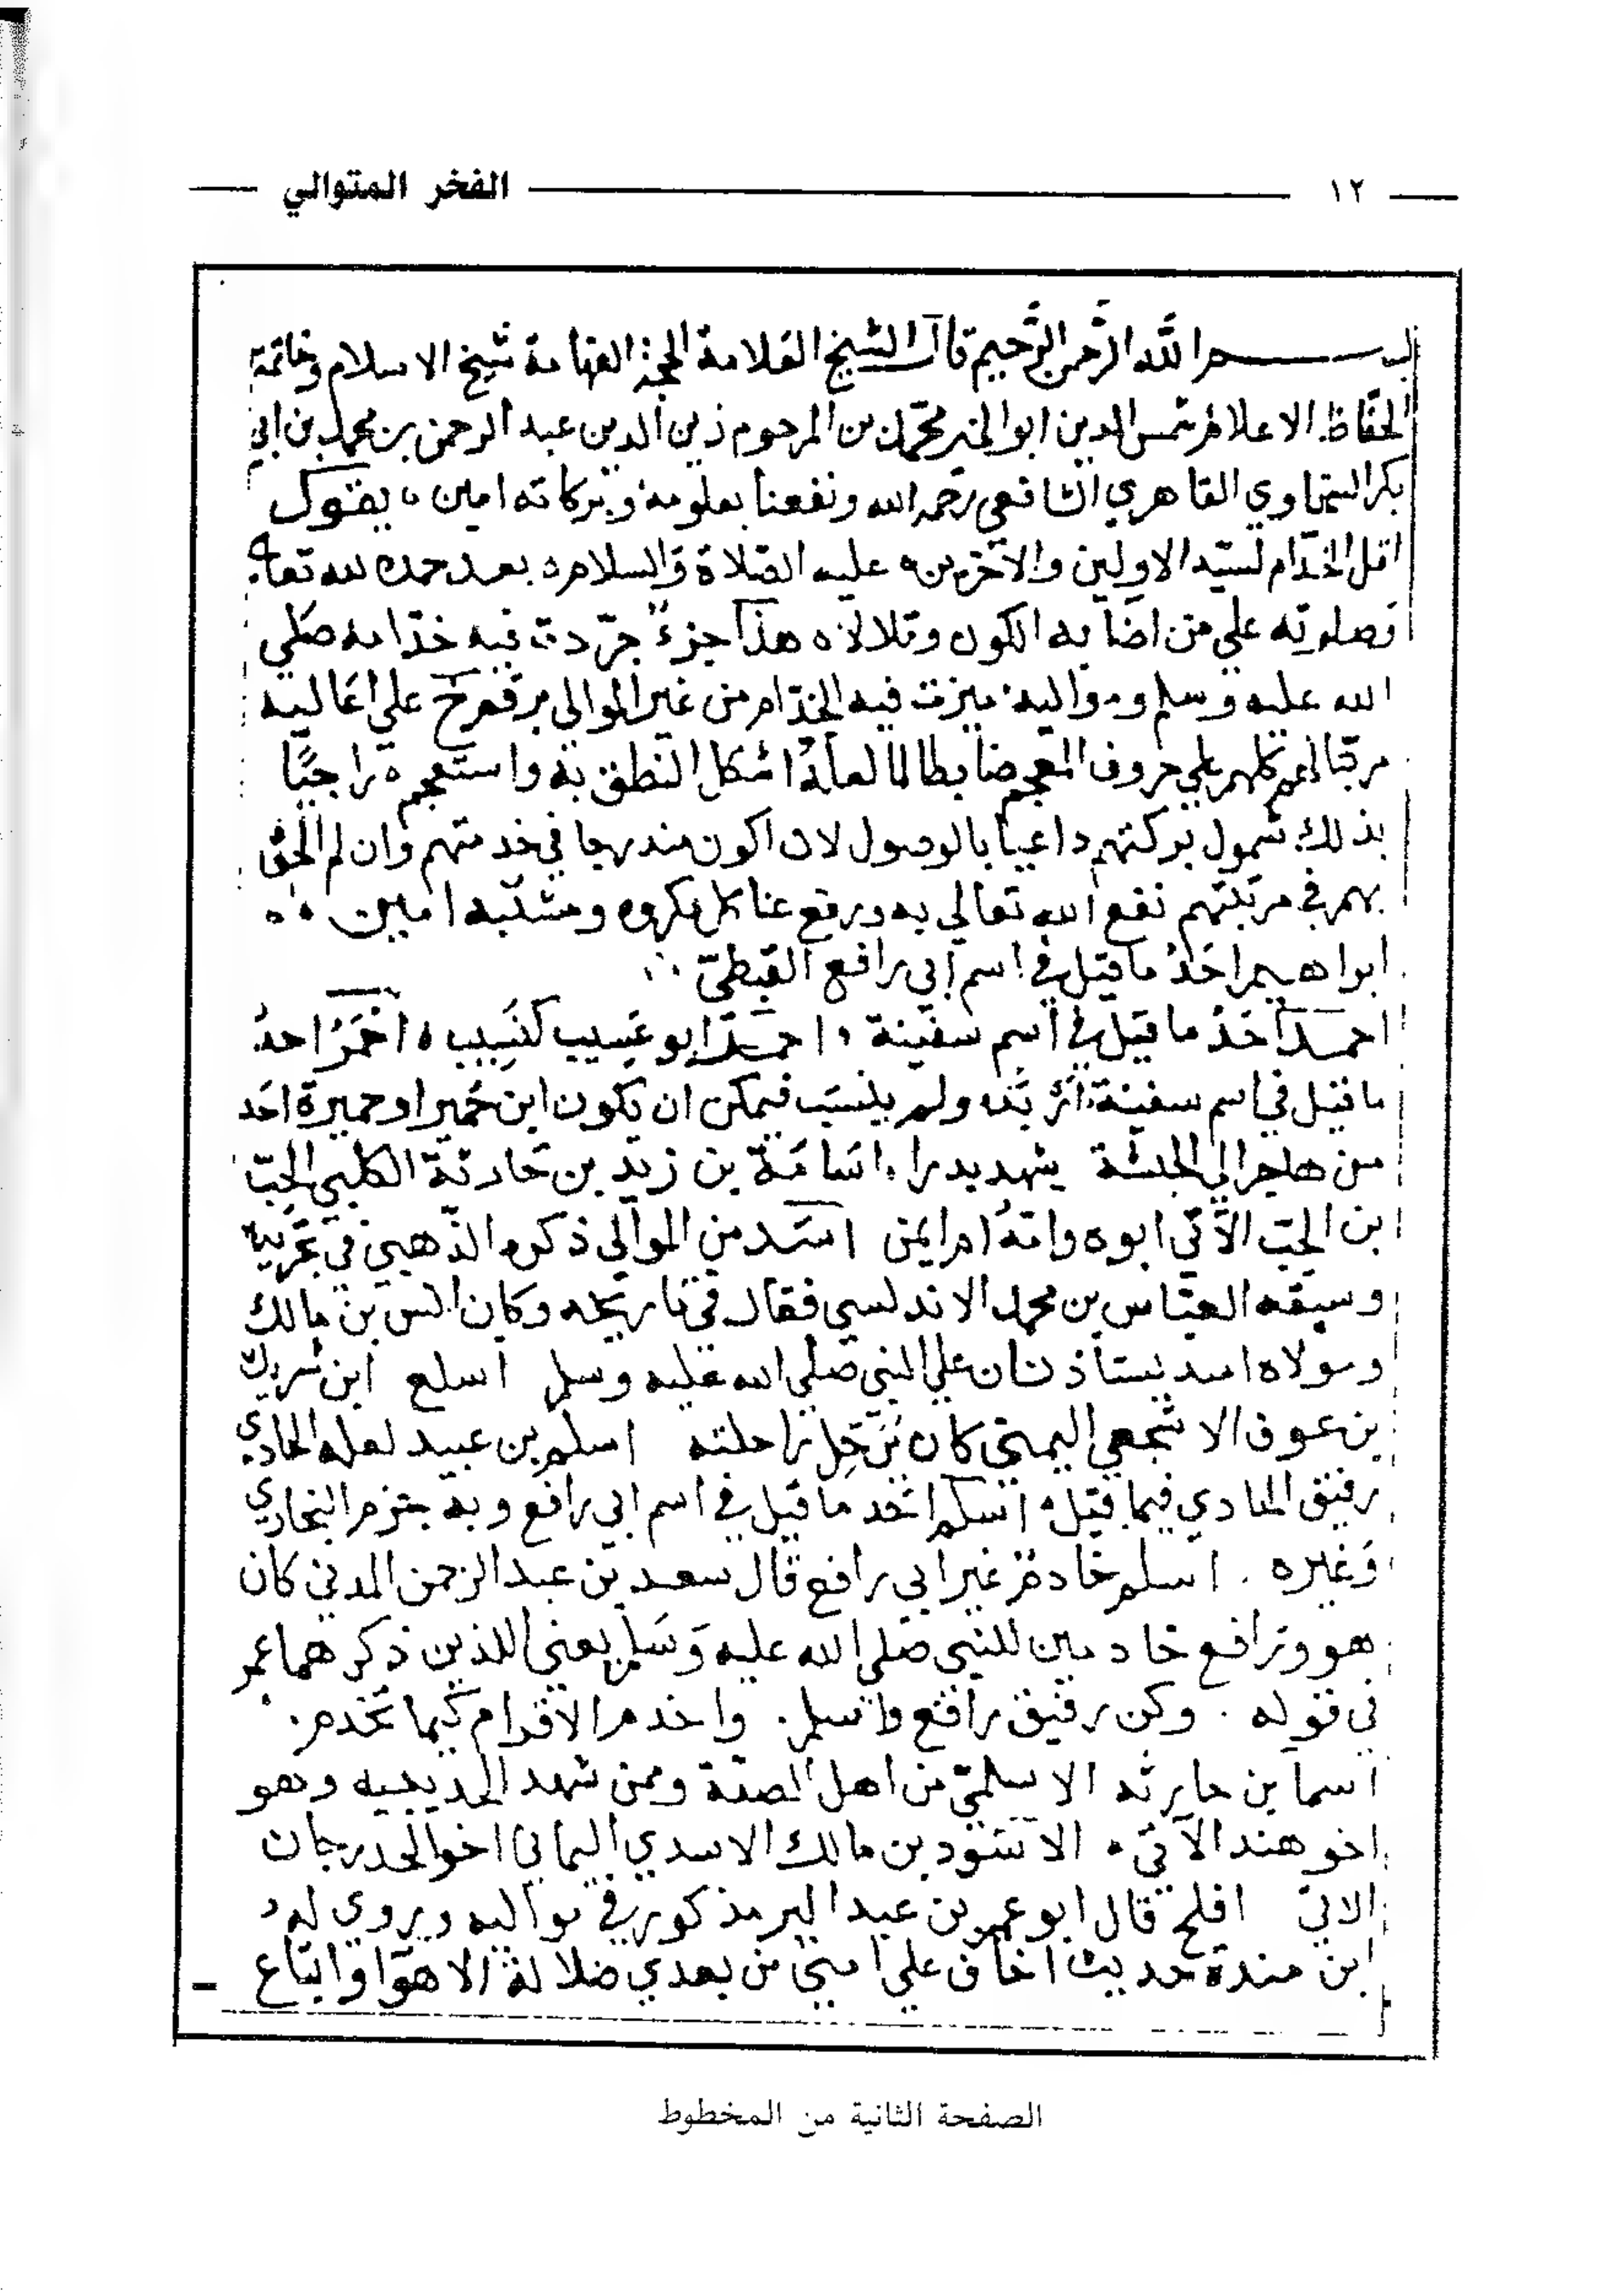 ١٢ الفخر المتوالي
بسم الله الرَّحمن الرَّحيم قال الشيخ العلامة الحجة الفهامة شيخ الاسلام وخاتمة
الحفّاظ الاعلام شمس الدين ابو الخير محمد بن المرحوم زين الدين عبد الرحمن بن محمد بن ابي
بكر السخاوي القاهري الشافعي رحمه الله ونفعنا بعلومه وبركاته امين ، يقول
اقل الخدّام لسيّد الاولين والآخرين ه عليه الصّلاة والسلام ه بعد حمده لله تعالى
وصلوته علي من اضا به الكون وتلالا ه هذا جزءٌ جرّدت فيه خدّامه صلي
الله عليه وسلم ومواليه ميزت فيه الخدّام من غير الموالي علي اعاليه
مرتبا لهم كلهم علي حروف المعجم ضابطا لما لعله اشكل النطق به واستعجم ه راجيًا
بذلك شمول بركتهم داعيا بالوصول لان اكون مندرجا في خدمتهم وان لم الحق
بهم في مرتبتهم نفع الله تعالي به ودفع عنا كل مكروه ومشتبه امين ه ه
ابراهيم احدُ ما قيل في اسم ابي رافع القبطيّ
احمد احدُ ما قيل في اسم سفينة ، احمد ابو عَسِيب كنَسِيب ، احمَرُ احدُ
ما قيل في اسم سفينة اربَد ولم ينسَب فيمكن ان يكون ابن حُمير او حميرة احَد
من هاجر الي الحبشة شهد بدرا ، اسَامَة بن زيد بن حَارثة الكلبي الحِبّ
بن الحِبّ الآتي ابوه وامّهُ ام ايمن اسَد من الموالي ذكره الذّهبي في تجريده
وسبقه العبّاس بن محمد الاندلسي فقال في تاريخه وكان انس بن مالك
ومولاه اسد يستأذنان علي النبي صلي الله عليه وسلم اسلع ابن شريك
بن عوف الاشجعي اليمني كان يُرَحِّل راحلته اسلم بن عبيد لعله الحادي
رفيق الحادي فيما قيل ، اسلم احد ما قيل في اسم ابي رافع وبه جزم البخاري
وَغيره . اسلم خادمٌ غير ابي رافع قال سعيد بن عبد الرحمن المدني كان
هو ورافع خادمين للنبي صلي الله عليه وَسَلم يعني اللذين ذكرهما عمر
في قوله . وكن رفيق رافع واسلم . واخدم الاقوام كيما تخدم .
اسما بن حارثه الاسلميّ من اهل الصفة وممن شهد الحديبيه وهو
اخو هند الآتي . الاسود بن مالك الاسدي اليماني اخو الحدرجان
الاتي افلح قال ابو عمر بن عبد البر مذكور في مواليه ويروي له
ابن مندة حديث اخاف علي امتي من بعدي ضلالة الاهوا واتباع
الصفحة الثانية من المخطوط